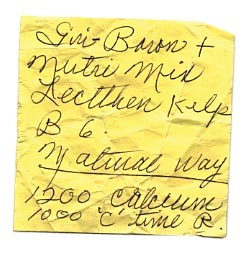 Giv-Baron +
Nutri Mix
Lecithen Kelp
B 6.
Natural Way
1200 Calcium
1000 "C" time R.